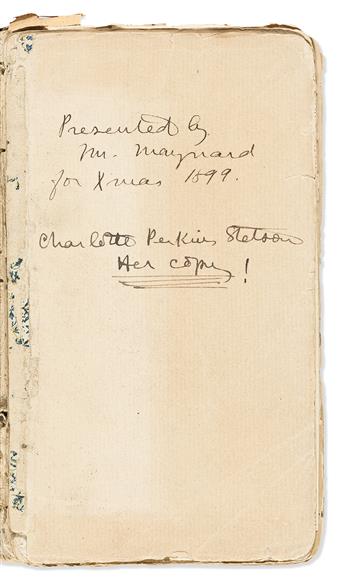 Presented by
Mr. Maynard
for Xmas 1899.
Charlotte Perkins Stetson
Her copy!